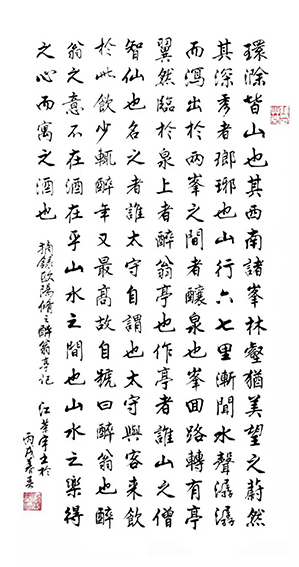 環滁皆山也其西南諸峯林壑猶美望之蔚然
其深秀者瑯琊也山行六七里漸聞水聲潺潺
而瀉出於兩峯之間者釀泉也峯回路轉有亭
翼然臨於泉上者醉翁亭也作亭者誰山之僧
智仙也名之者誰太守自謂也太守與客來飲
於此飲少輒醉年又最高故自號曰醉翁也醉
翁之意不在酒在乎山水之間也山水之樂得
之心而寓之酒也 摘錄歐陽脩之醉翁亭記
丙戌春